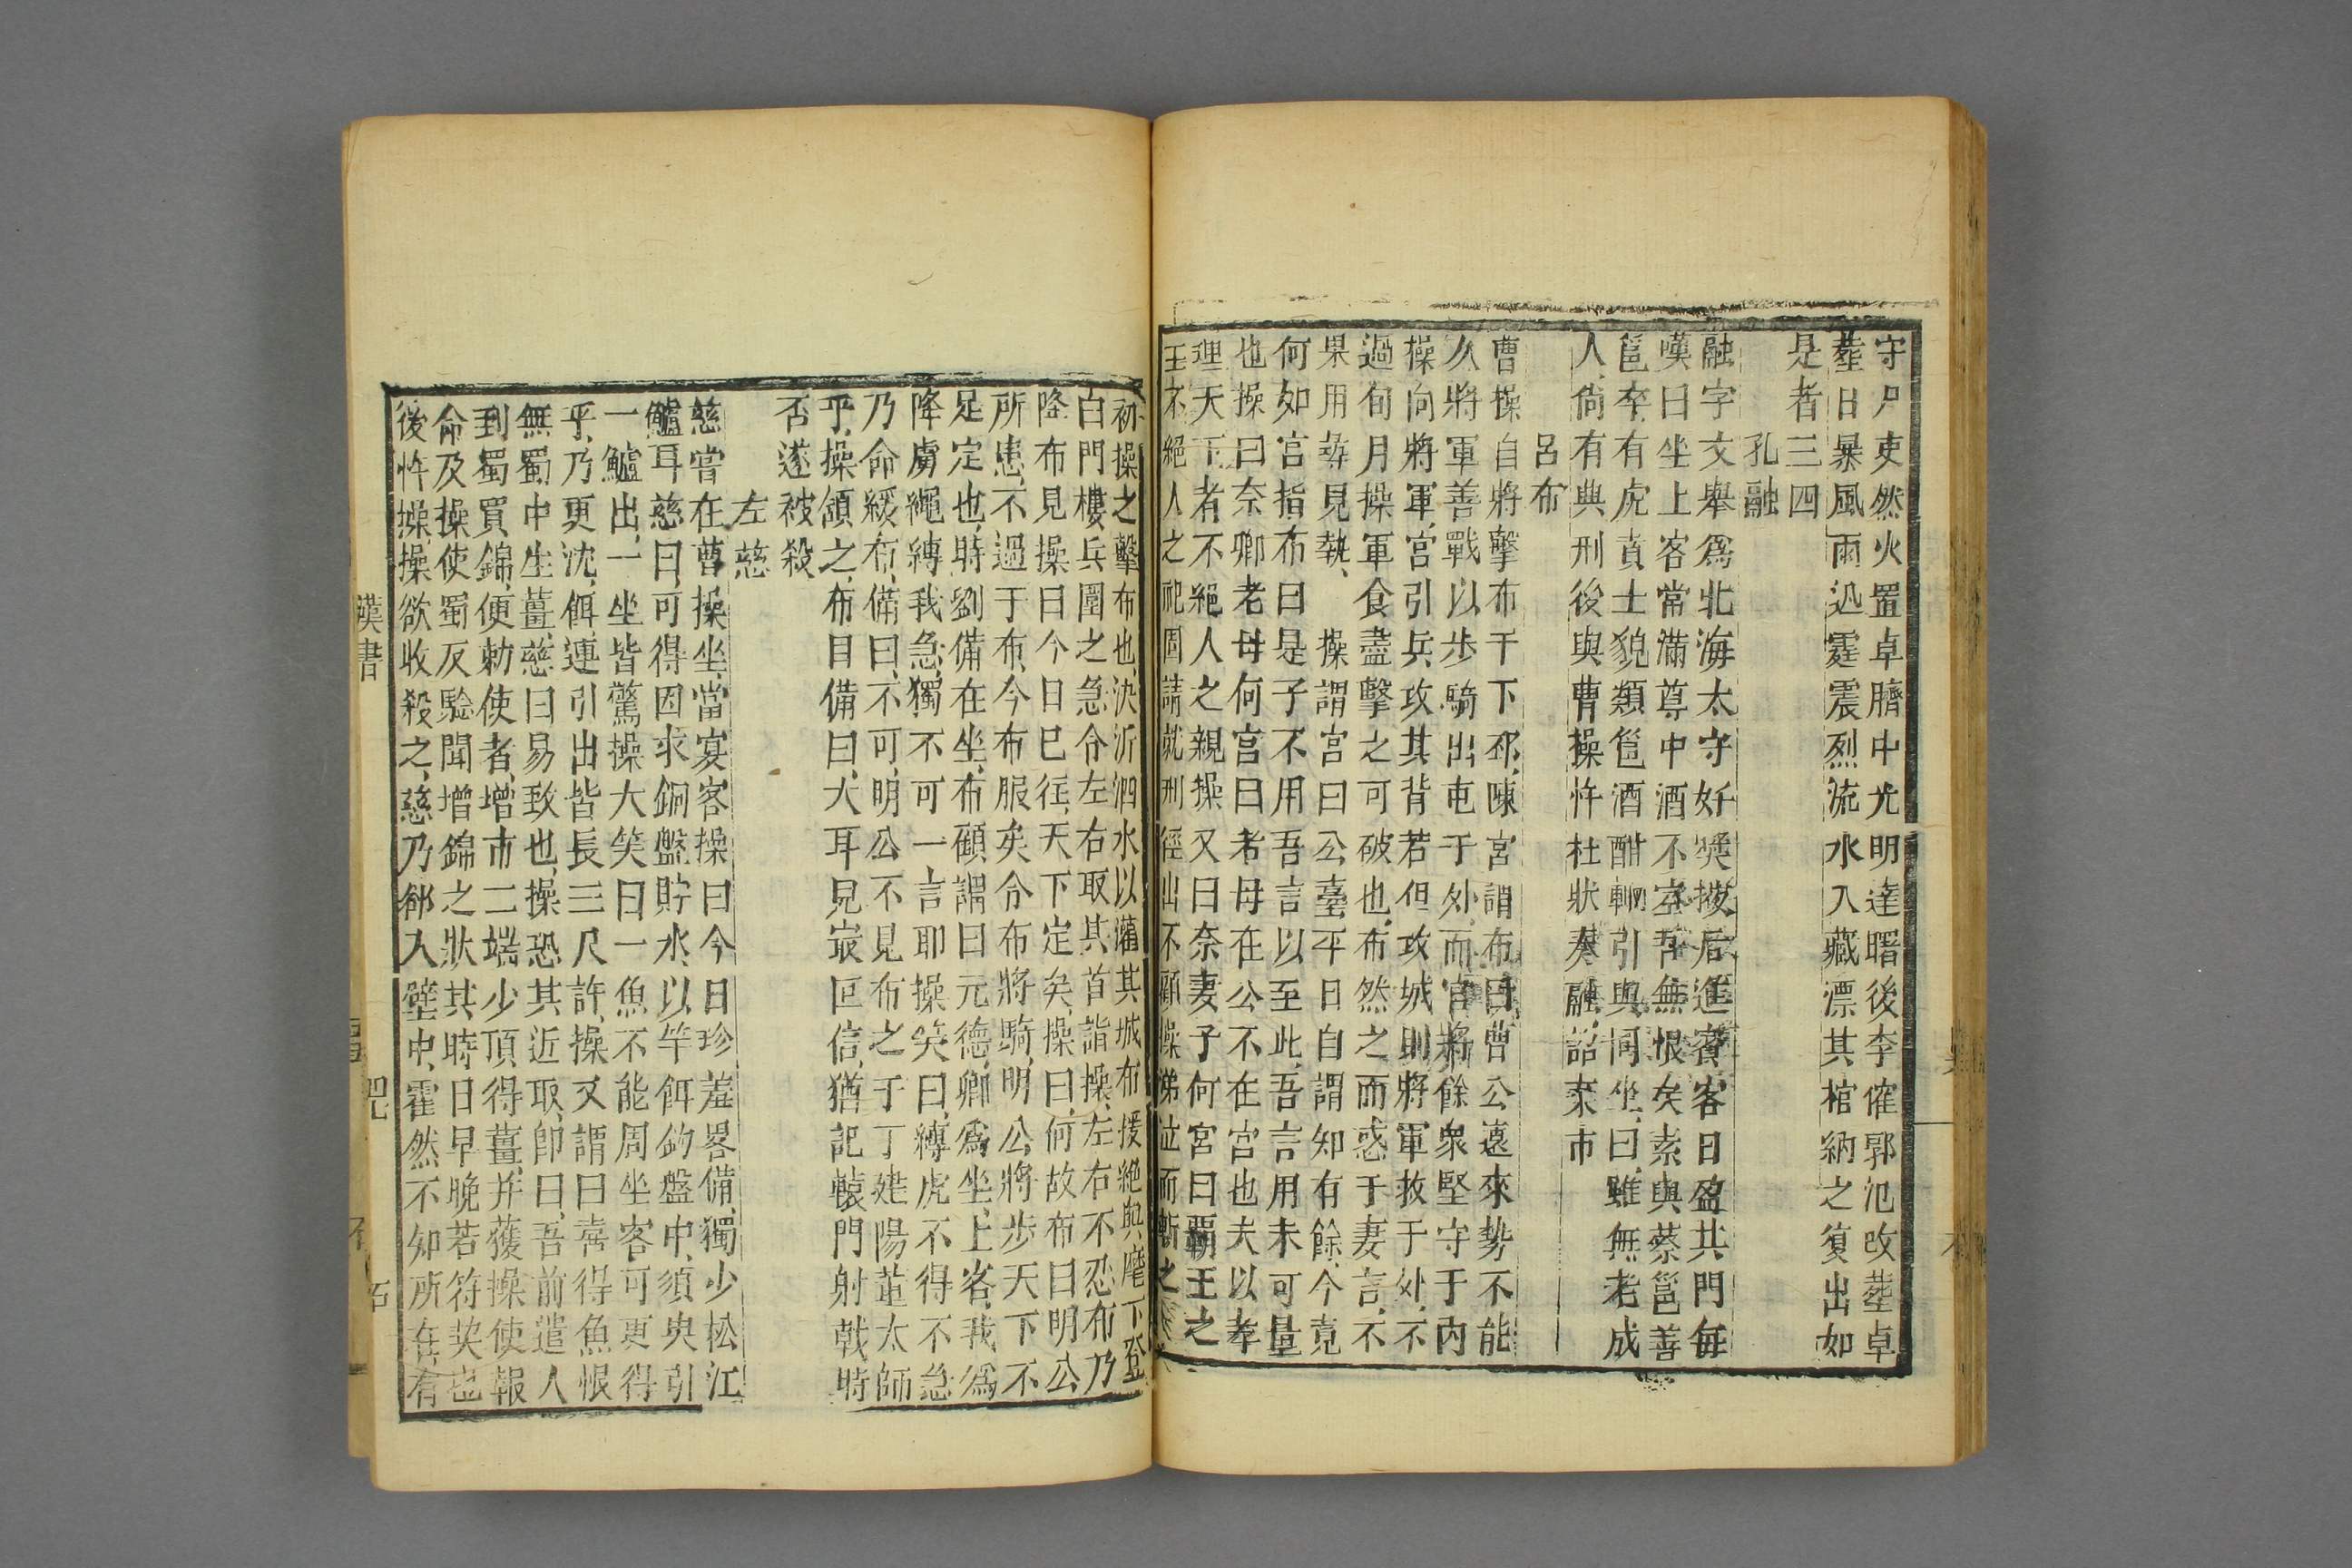 守尸吏然火置卓臍中光明達曙後李傕郭氾改塟卓
塟日暴風雨迅霆震烈流水入藏漂其棺納之復出如
是者三四
孔融
融字文舉爲北海太守好奬掖后進賓客日盈其門每
嘆曰坐上客常滿尊中酒不空吾無恨矣素與蔡邕善
邕卒有虎賁士貌類邕酒酣輒引與同坐曰雖無老成
人尙有典刑後與曹操忤杜狀奏融詔棄市
呂布
曹操自將擊布于下邳陳宮謂布曰曹公遠來勢不能
久將軍善戰以步騎出屯于外而宮將餘衆堅守于内
操向將軍宮引兵攻其背若但攻城則將軍救于外不
過旬月操軍食盡擊之可破也布然之而惑于妻言不
果用尋見執操謂宮曰公臺平日自謂知有餘今竟
何如宮指布曰是子不用吾言以至此吾言用未可量
也操曰奈卿老母何宮曰老母在公不在宮也夫以孝
理天下者不絕人之親操又曰奈妻子何宮曰覇王之
主不絕人之祀固請就刑徑出不顧操涕泣而斬之
初操之擊布也決沂泗水以灌其城布援絕與麾下登
白門樓兵圍之急令左右取其首詣操左右不忍布乃
降布見操曰今日已往天下定矣操曰何故布曰明公
所患不過于布今布服矣令布將騎明公將步天下不
足定也時劉備在坐布顧謂曰元德卿爲坐上客我爲
降虜繩縛我急獨不可一言耶操笑曰縛虎不得不急
乃命緩布備曰不可明公不見布之于丁建陽董太師
乎操頷之布目備曰大耳見最叵信猶記轅門射戟時
否遂被殺
左慈
慈嘗在曹操坐當宴客操曰今日珍羞畧備獨少松江
鱸耳慈曰可得因求銅盤貯水以竿餌釣盤中須臾引
一鱸出一坐皆驚操大笑曰一魚不能周坐客可更得
乎乃更沈餌連引出皆長三尺許操又謂曰喜得魚恨
無蜀中生薑慈曰易致也操恐其近取卽曰吾前遣人
到蜀買錦便勅使者增市二端少頂得薑并獲操使報
命及操使蜀反驗聞增錦之狀其時日早晚若符契也
後忤操操欲收殺之慈乃郤入壁中霍然不知所在有
漢書